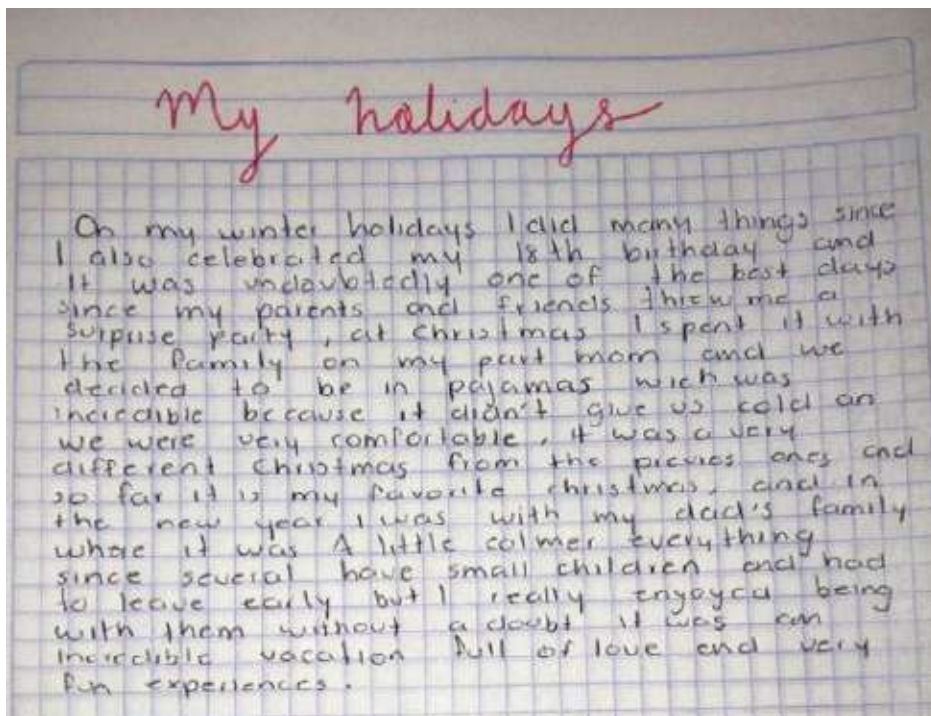 My holidays
On my winter holidays I did many things since
I also celebrated my 18th birthday and
It was undoubtedly one of the best days
since my parents and friends threw me a
surprise party, at christmas I spent it with
the family on my part mom and we
decided to be in pajamas wich was
incredible because it didn't give us cold an
we were very comfortable, it was a very
different christmas from the picvies ones and
so far it is my favorite christmas, and in
the new year I was with my dad's family
whore it was A little calmer everything
since several have small children and had
to leave early but I really enyoyed being
with them without a doubt it was an
incredible vacation full of love and very
fun experiences.